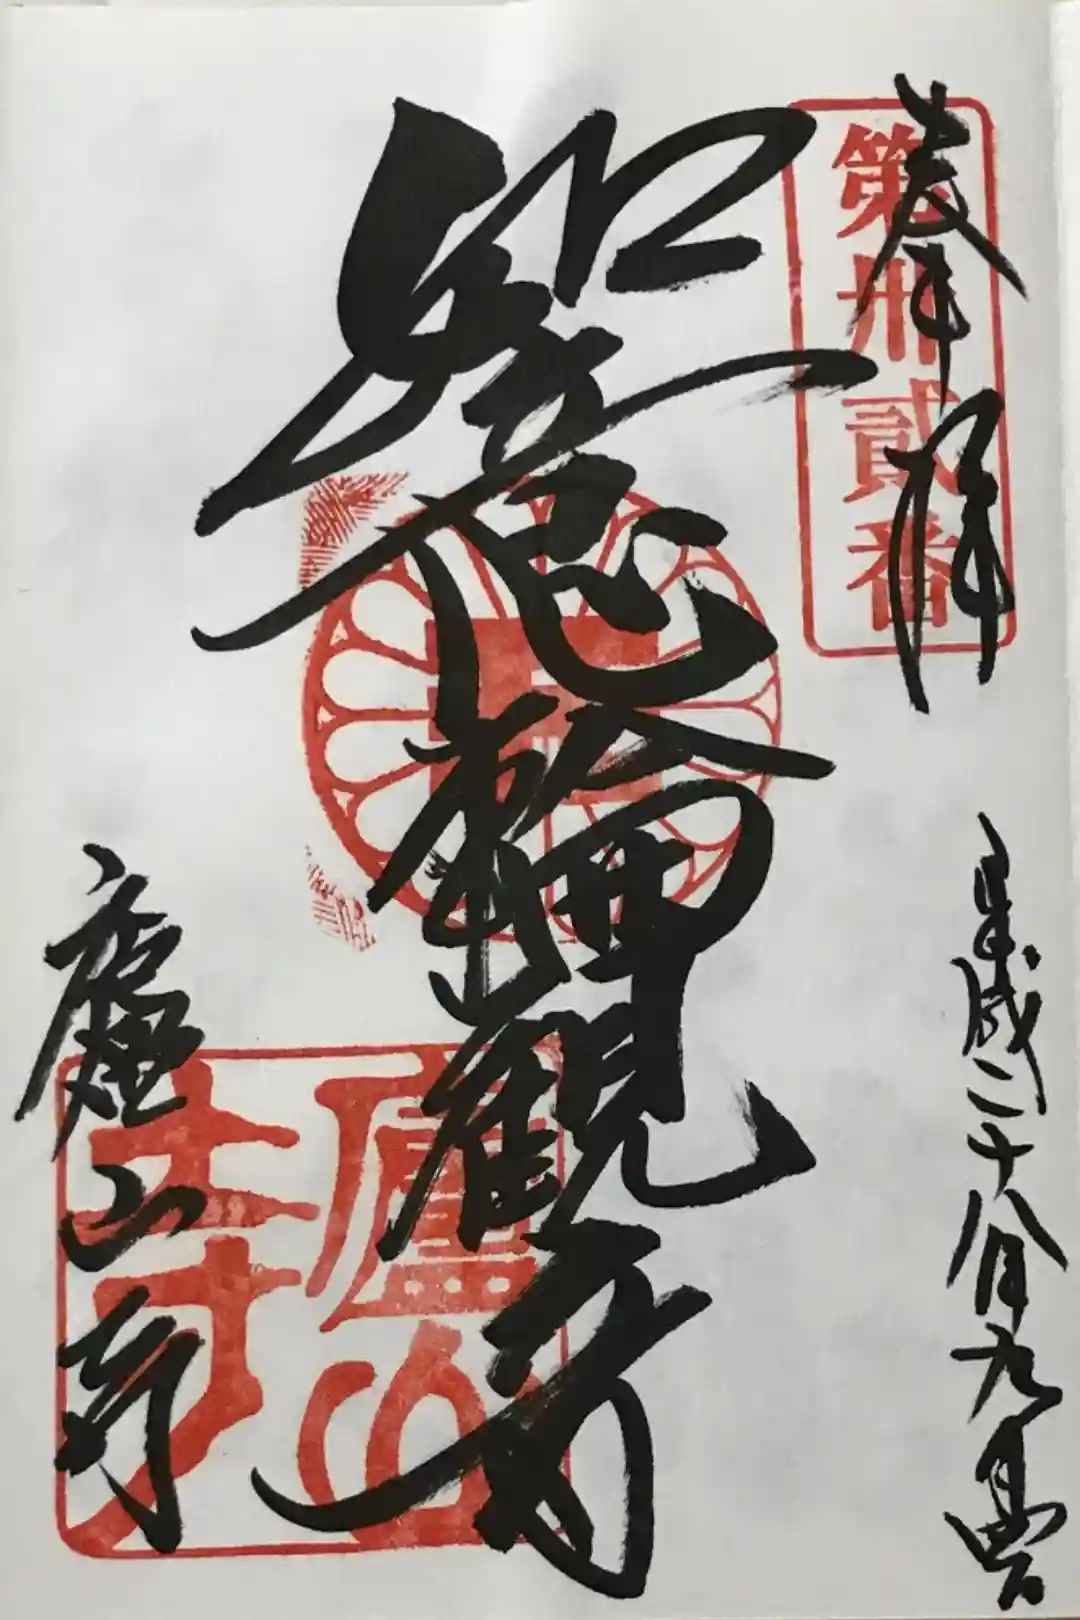 奉拝
第卅貳番
平成二十八年九月
如意輪観音
廬山寺
廬山寺